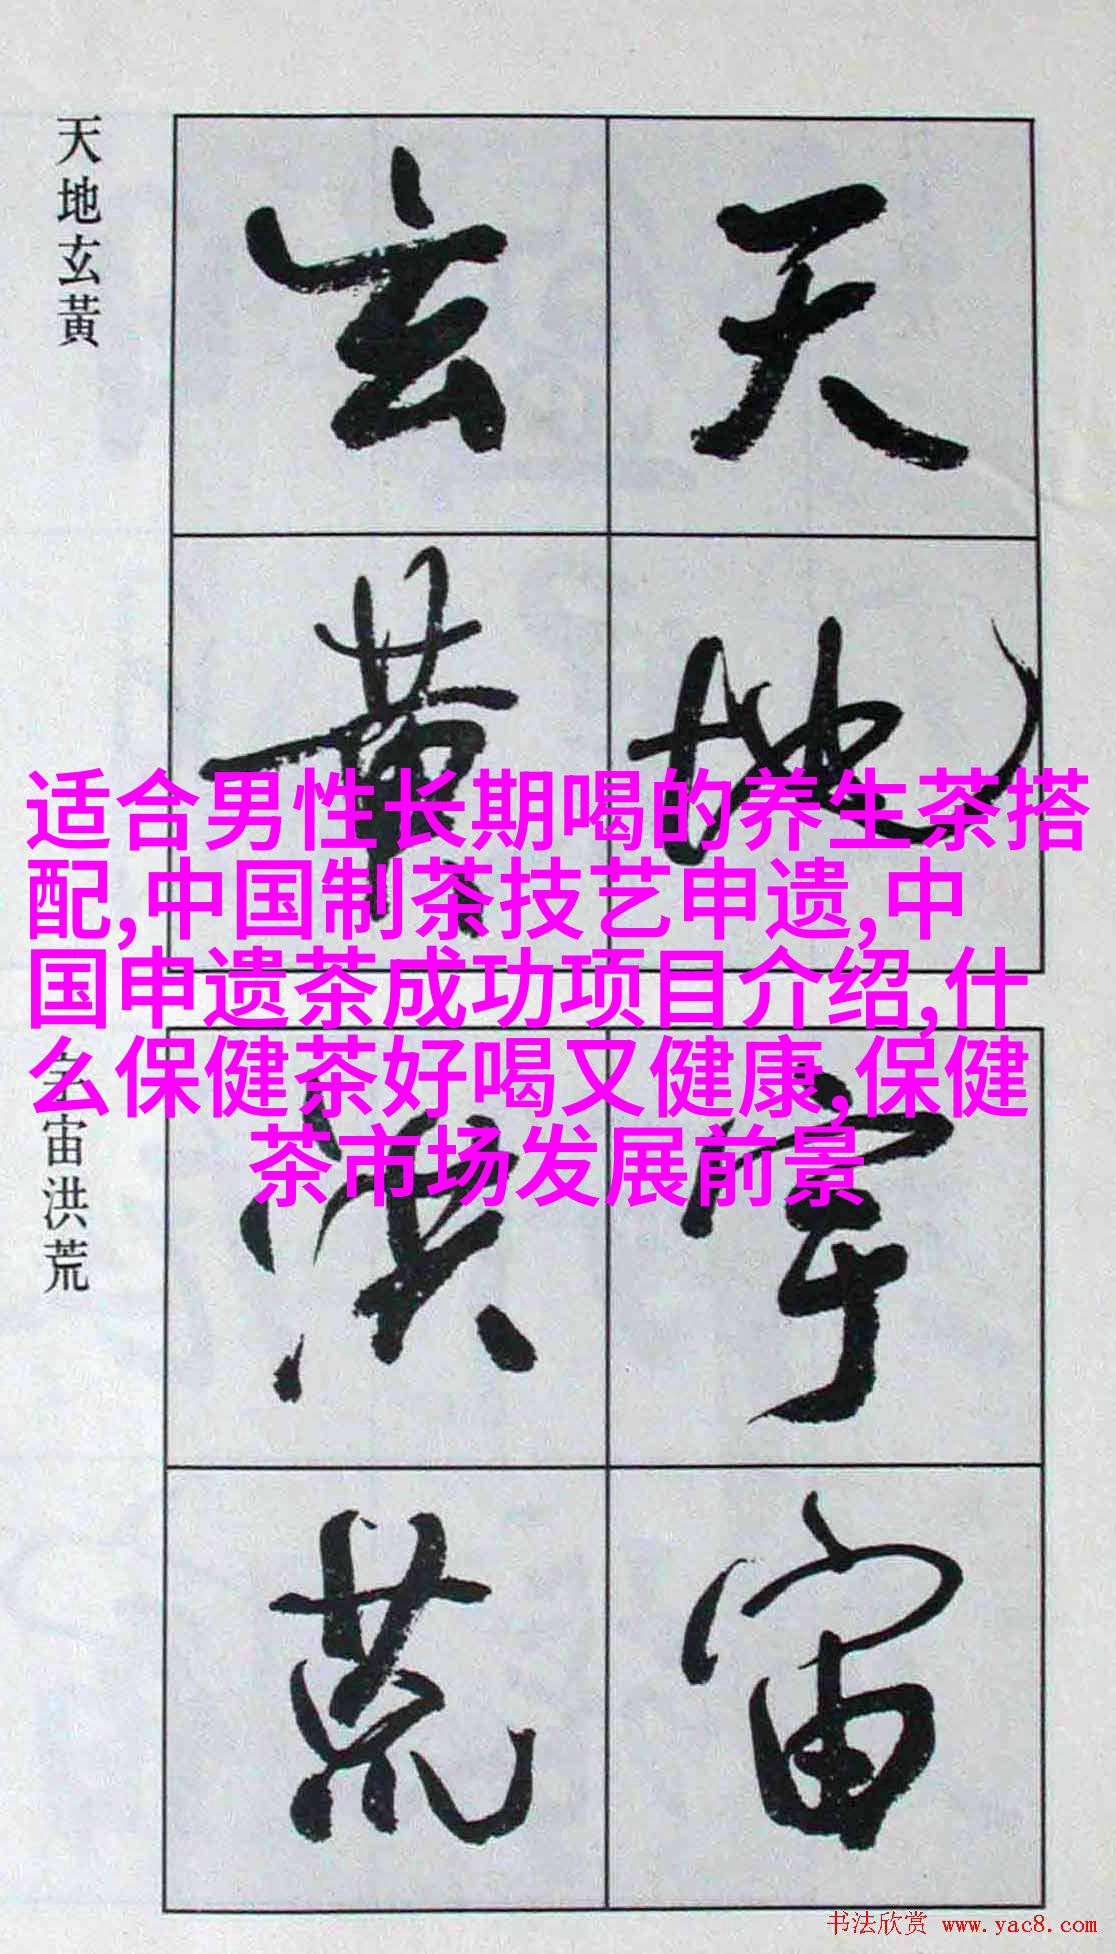 天地玄黃
天地
玄黃
适合男性长期喝的养生茶搭
配,中国制茶技艺申遗,中
国申遗茶成功项目介绍,什
么保健茶好喝又健康,保健
茶市场发展前景
宇宙洪荒
宇宙
洪荒
书法欣赏 www.yac8.com